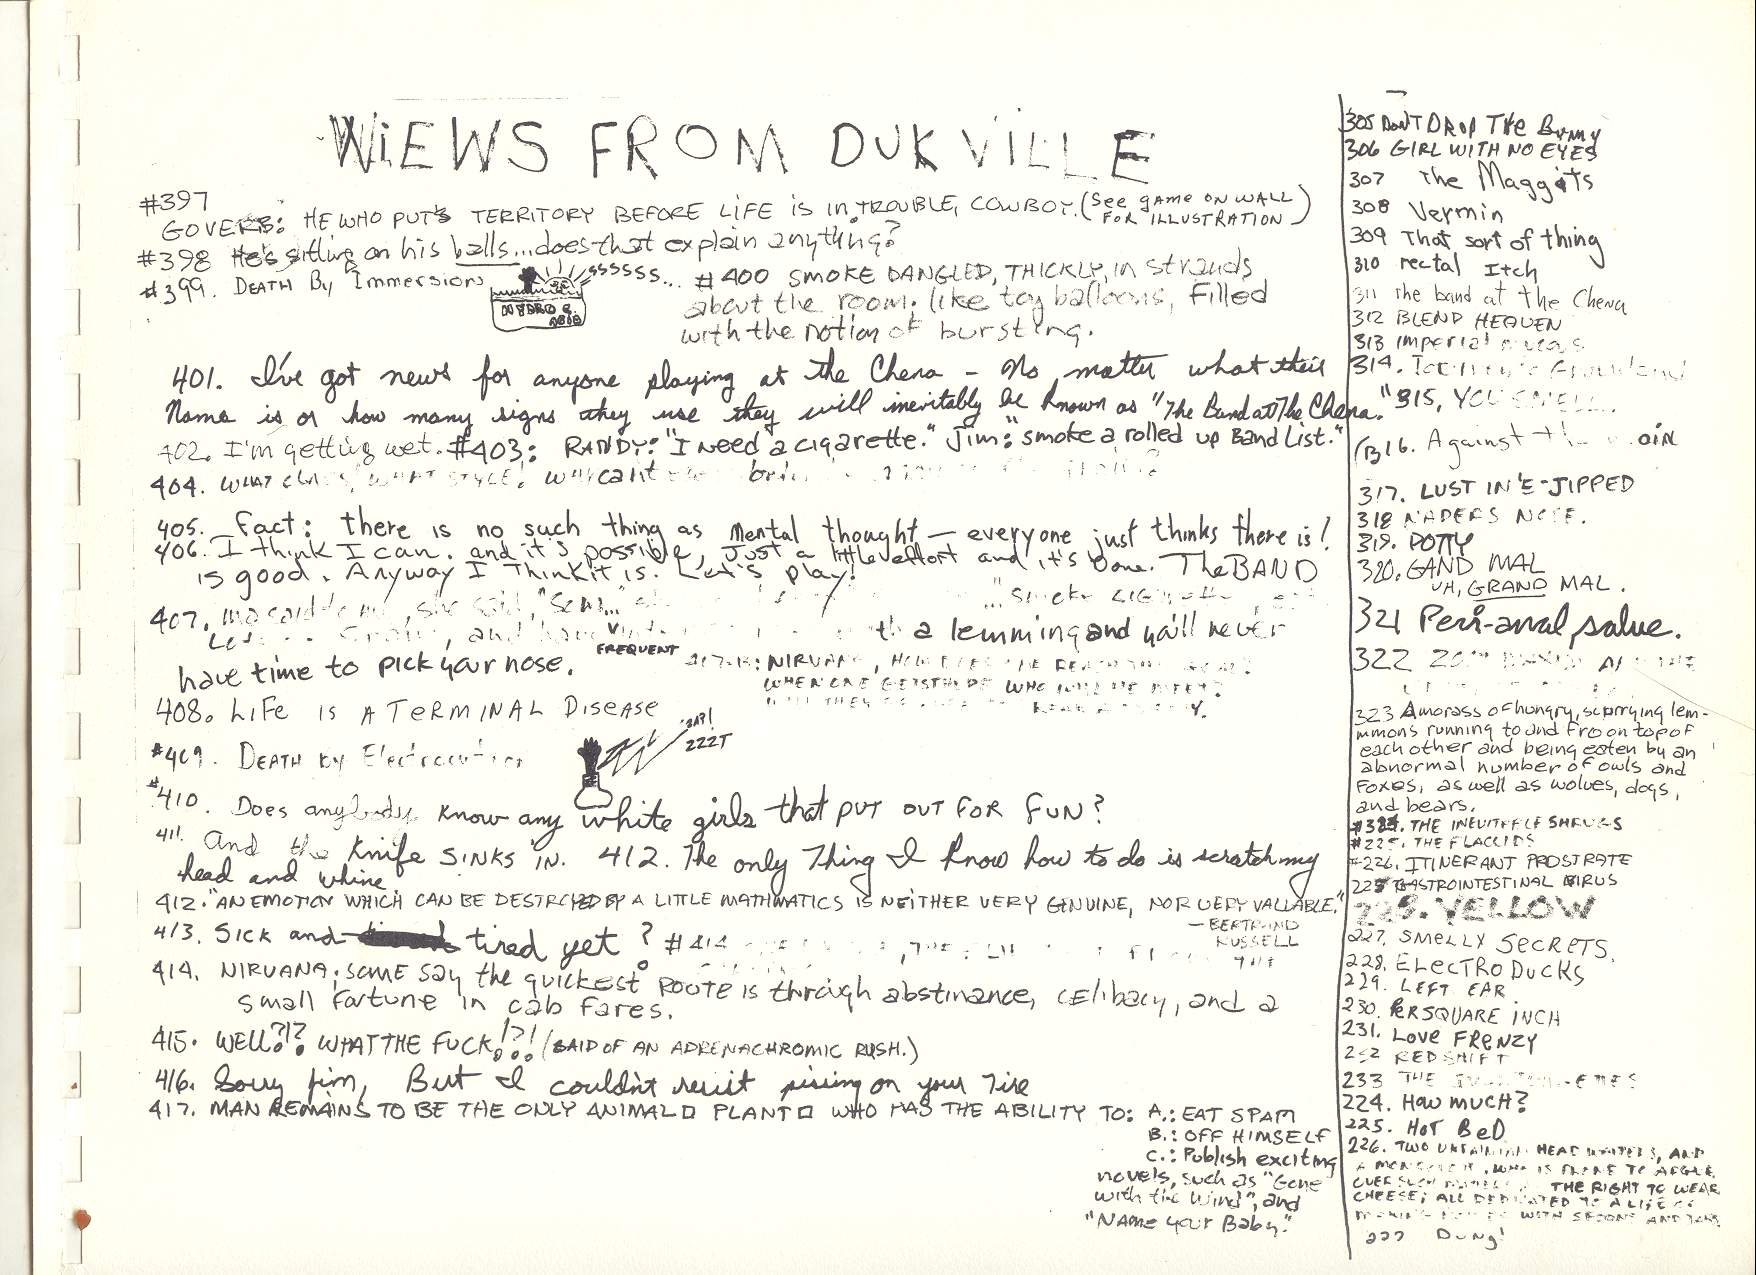 WIEWS FROM DUKVILLE
#397
GOVERB: HE WHO PUTS TERRITORY BEFORE LIFE IS IN TROUBLE, COWBOY. (See game ON WALL
FOR ILLUSTRATION)
#398 He's sitting on his balls... does that explain anything?
#399. DEATH By Immersion
SSSSSS...
HYDRO C.
ACID
#400 SMOKE DANGLED, THICKLY, in strands
about the room. like toy balloons, Filled
with the notion of bursting.
401. I've got news for anyone playing at the Chena - No matter what their
Name is or how many signs they use they will inevitably be known as "The Band at The Chena."
402. I'm getting wet. #403: RANDY: "I need a cigarette." Jim: "smoke a rolled up Band List."
404. WHAT CLASS, WHAT STYLE! WHY can't
405. Fact: there is no such thing as Mental thought — everyone just thinks there is!
406. I think I can. and it's possible, Just a little effort and it's Done. The BAND
is good. Anyway I Think it is. Let's play!
407. ma said to me, she said, "Son..."
and have FREQUENT
with a lemming and ya'll never
have time to pick your nose.
NIRVANA,
WHEN ONE GETS THERE WHO WILL HE MEET?
408. LIFE IS A TERMINAL DISEASE
#409. DEATH by Electrocution
ZAP!
ZZZT
#410. Does anybody know any white girls that PUT OUT FOR FUN?
411. And the Knife SINKS IN. 412. The only Thing I know how to do is scratch my
head and whine.
412. "AN EMOTION WHICH CAN BE DESTROYED BY A LITTLE MATHMATICS IS NEITHER VERY GENUINE, NOR VERY VALUABLE."
— BERTRAND
RUSSELL
413. Sick and tired yet? #414
414. NIRVANA: SOME SAY the quickest ROUTE is through abstinance, CELIBACY, and a
small fortune in cab fares.
415. WELL?!? WHAT THE FUCK!?! (SAID OF AN ADRENACHROMIC RUSH.)
416. Sorry Jim, But I couldn't resist pissing on your Tire
417. MAN REMAINS TO BE THE ONLY ANIMAL □ PLANT □ WHO HAS THE ABILITY TO: A.: EAT SPAM
B.: OFF HIMSELF
C.: Publish exciting
novels, such as "Gone
with the Wind", and
"Name your Baby."
305 DON'T DROP THE Bunny
306 GIRL WITH NO EYES
307 The Maggots
308 Vermin
309 That sort of thing
310 rectal Itch
311 The band at the Chena
312 BLEND HEAVEN
313 Imperial
314.
315, YOU SMELL.
316. Against the
317. LUST IN 'E-JIPPED
318 NADERS NOSE.
319. DOTTY
320. GAND MAL
UH, GRAND MAL.
321 Peri-anal salve.
322
323 A morass of hungry, scurrying lem-
mmons running to and fro on top of
each other and being eaten by an
abnormal number of owls and
foxes, as well as wolves, dogs,
and bears.
THE INEVITABLE SHRUGS
#225. THE FLACCIDS
#226. ITINERANT PROSTRATE
227 GASTROINTESTINAL VIRUS
228. YELLOW
227. SMELLY SECRETS.
228. ELECTRO DUCKS
229. LEFT EAR
230. PER SQUARE INCH
231. LOVE FRENZY
232 RED SHIFT
233 THE
224. HOW MUCH?
225. HOT BED
226. TWO UKRAINIAN HEAD WAITERS, AND
WHO IS PRONE TO ARGUE
OVER SUCH THE RIGHT TO WEAR
CHEESE; ALL DEDICATED TO A LIFE OF
WITH SECONDS AND
227 Dung!